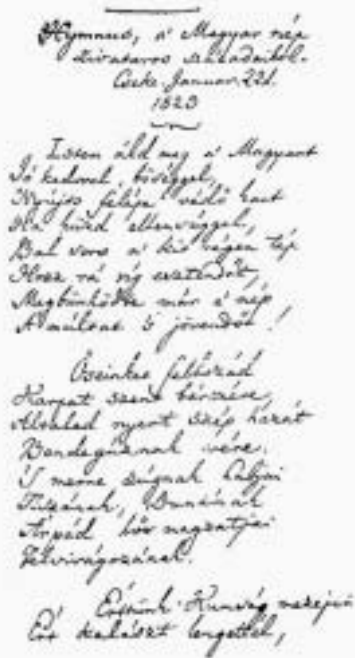 Hymnus, a' Magyar nép
zivataros századaiból.
Cseke. Januar. 22d.
1823
Isten áld meg a' Magyart
Jó kedvvel, bőséggel,
Nyújts feléje védő kart
Ha küzd ellenséggel,
Bal sors a' kit régen tép
Hozz rá víg esztendőt,
Megbűnhődte már e' nép
A' múltat 's jövendőt!
Őseinket felhozád
Kárpát szent bérczére,
Általad nyert szép hazát
Bendegúznak vére.
'S merre zúgnak habjai
Tiszának, Dunának
Árpád hős magzatjai
Felvirágozának.
Értünk Kunság mezejein
Ért kalászt lengettél,